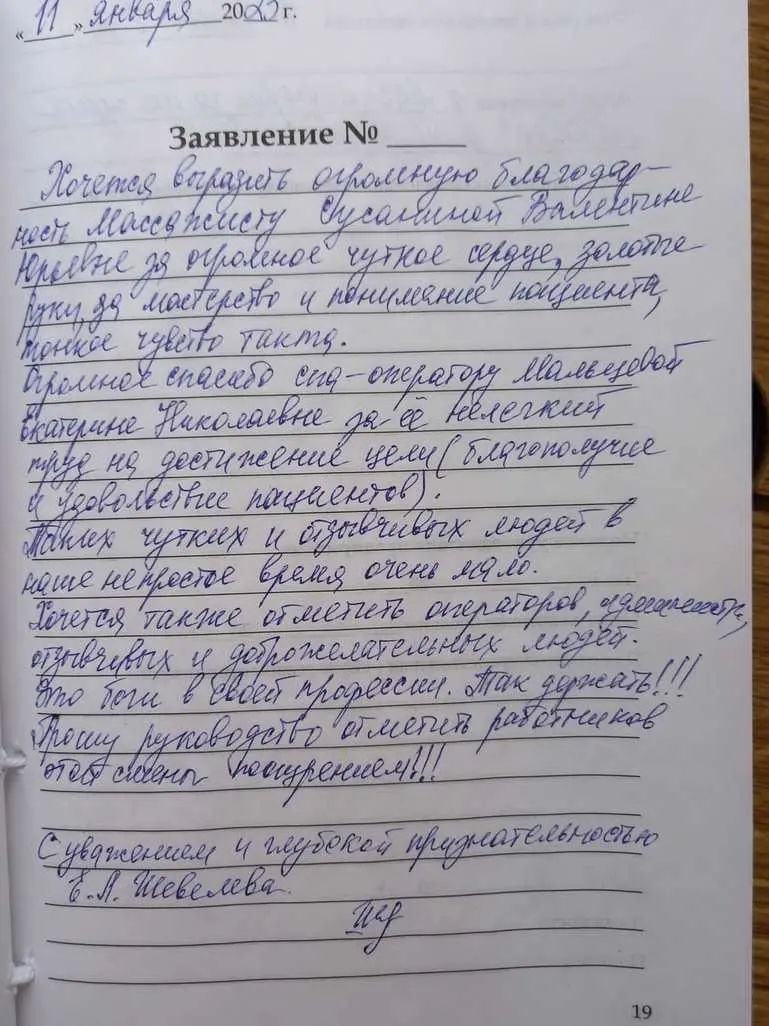 « 11 » января 2022 г.
Заявление № ____
Хочется выразить огромную благодар-
ность Массажисту Сусаниной Валентине
Юрьевне за огромное чуткое сердце, золотые
руки, за мастерство и понимание пациента,
тонкое чувство такта.
Огромное спасибо спа-оператору Мальцевой
Екатерине Николаевне за её нелегкий
труд на достижение цели (благополучие
и удовольствие пациентов).
Таких чутких и отзывчивых людей в
наше непростое время очень мало.
Хочется также отметить операторов, администр,
отзывчивых и доброжелательных людей.
Это боги в своей профессии. Так держать!!!
Прошу руководство отметить работников
этой смены поощрением!!!
С уважением и глубокой признательностью
Е.А. Шевелева.
19